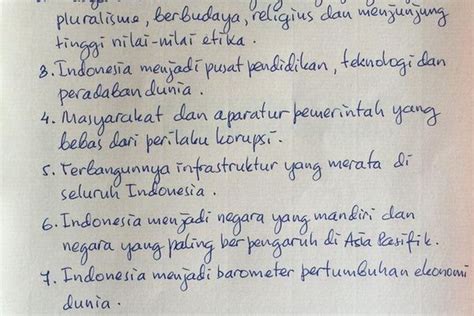 pluralisme, berbudaya, religius dan menjunjung
tinggi nilai-nilai etika.
3. Indonesia menjadi pusat pendidikan, teknologi dan
peradaban dunia.
4. Masyarakat dan aparatur pemerintah yang
bebas dari perilaku korupsi.
5. Terbangunnya infrastruktur yang merata di
seluruh Indonesia.
6. Indonesia menjadi negara yang mandiri dan
negara yang paling berpengaruh di Asia Pasifik.
7. Indonesia menjadi barometer pertumbuhan ekonomi
dunia.